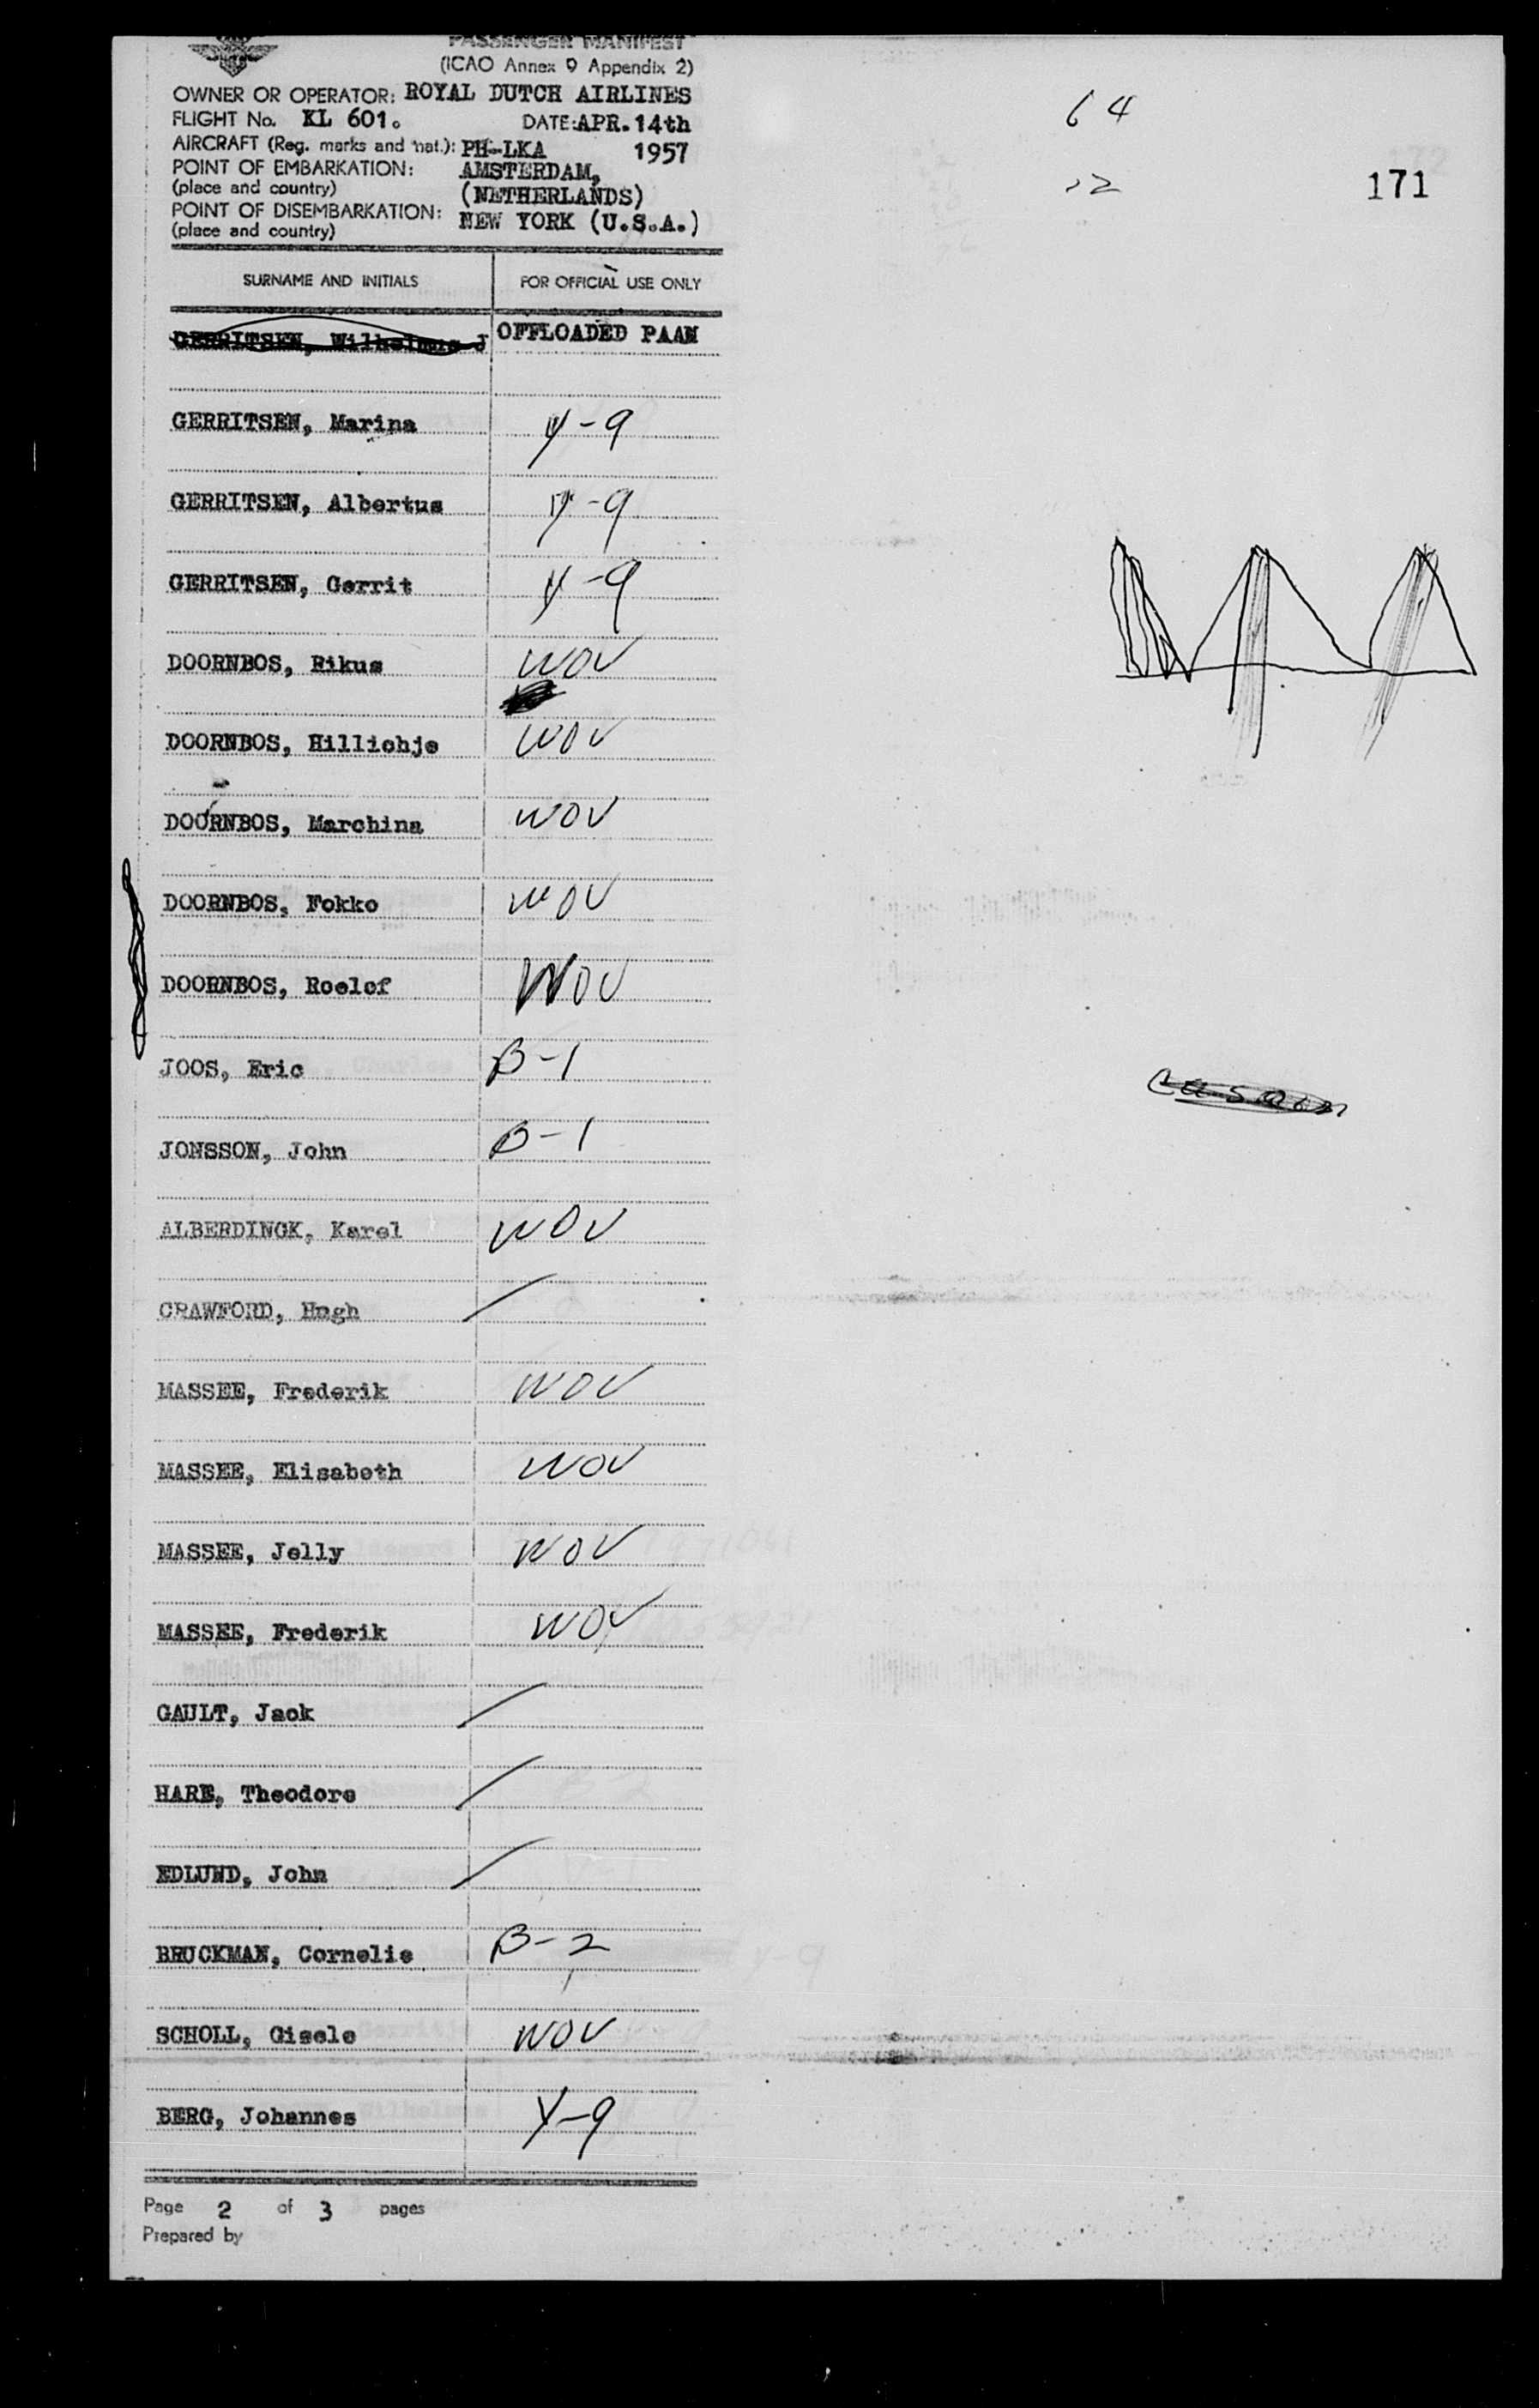 PASSENGER MANIFEST
(ICAO Annex 9 Appendix 2)
OWNER OR OPERATOR: ROYAL DUTCH AIRLINES
FLIGHT No. KL 601.
DATE: APR. 14th
1957
AIRCRAFT (Reg. marks and nat.): PH-LKA
POINT OF EMBARKATION: AMSTERDAM,
(place and country) (NETHERLANDS)
POINT OF DISEMBARKATION: NEW YORK (U.S.A.)
(place and country)
64
22
171
SURNAME AND INITIALS FOR OFFICIAL USE ONLY
GERRITSEN, Wilhelmus J OFFLOADED PAAM
GERRITSEN, Marina Y-9
GERRITSEN, Albertus Y-9
GERRITSEN, Gerrit Y-9
DOORNBOS, Rikus WOV
DOORNBOS, Hillichje WOV
DOORNBOS, Marchina WOV
DOORNBOS, Fokko WOV
DOORNBOS, Roelof WOV
JOOS, Eric B-1
JONSSON, John B-1
ALBERDINGK, Karel WOV
CRAWFORD, Hugh
MASSEE, Frederik WOV
MASSEE, Elisabeth WOV
MASSEE, Jelly WOV
MASSEE, Frederik WOV
GAULT, Jack
HARE, Theodore
EDLUND, John
BRUCKMAN, Cornelis B-2
SCHOLL, Gisele WOV
BERG, Johannes Y-9
Page 2 of 3 pages
Prepared by